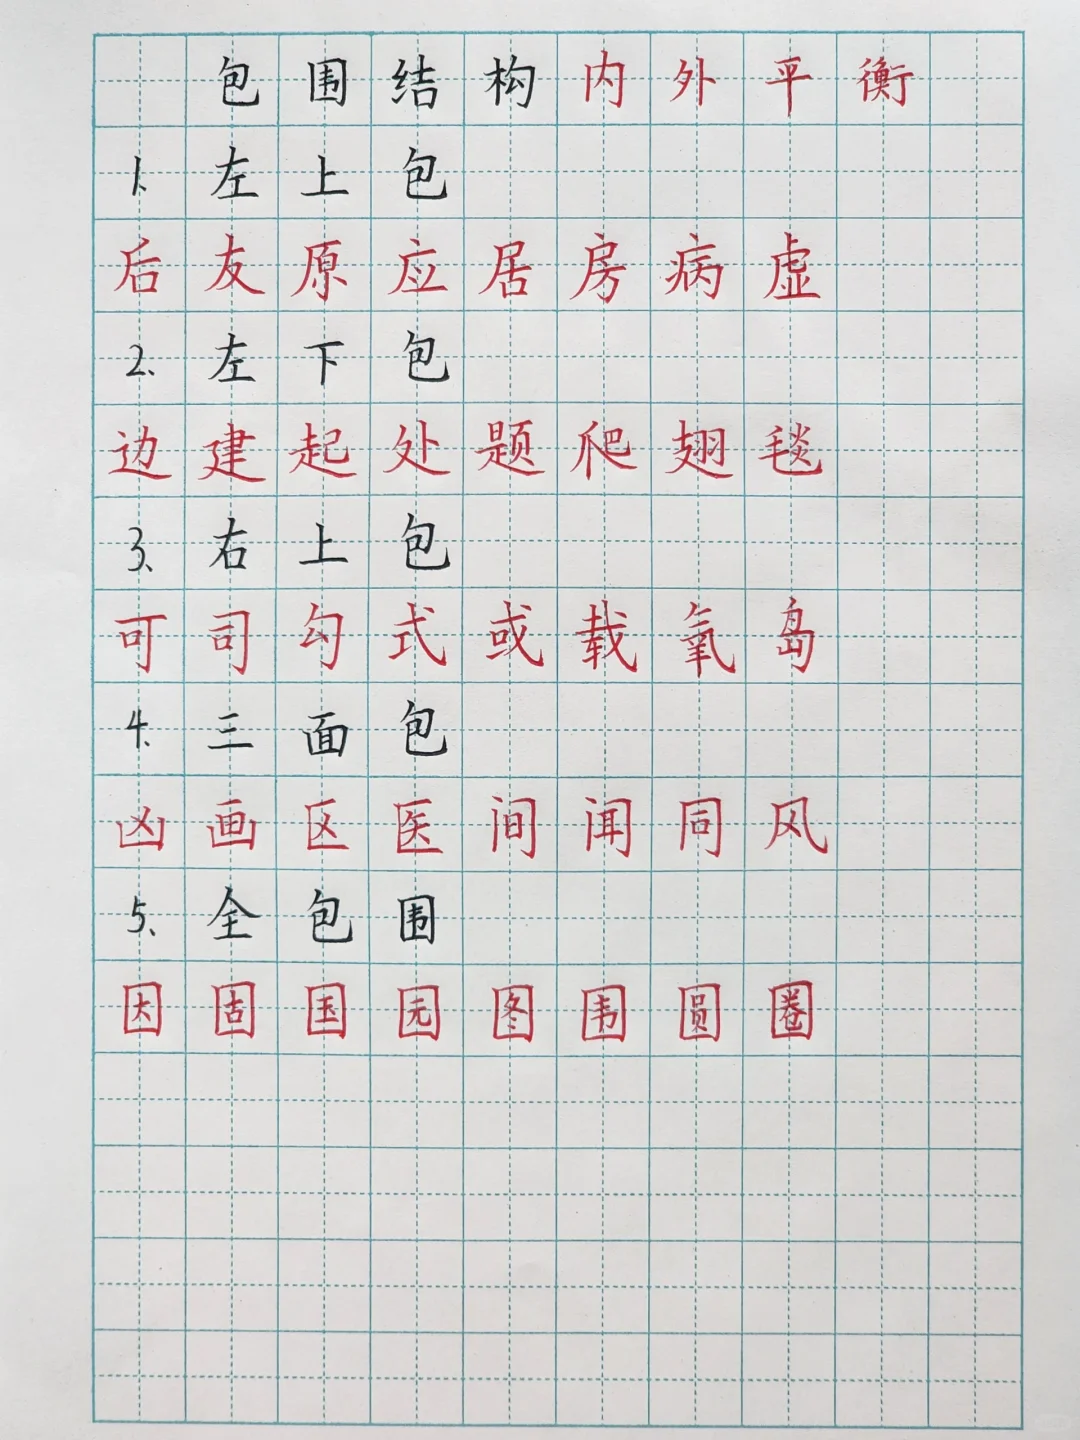 包围结构内外平衡
1、左上包
后友原应居房病虚
2、左下包
边建起处题爬翅毯
3、右上包
可司勾式或载氧岛
4、三面包
凶画区医间闻同风
5、全包围
因固国园图围圆圈